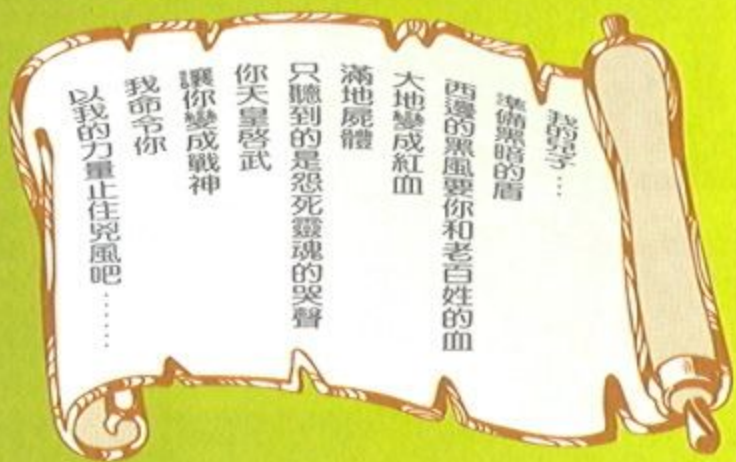 我的兒子...
準備黑暗的盾
西邊的黑風要你和老百姓的血
大地變成紅血
滿地屍體
只聽到的是怨死靈魂的哭聲
你天皇啓武
讓你變成戰神
我命令你
以我的力量止住兇風吧......